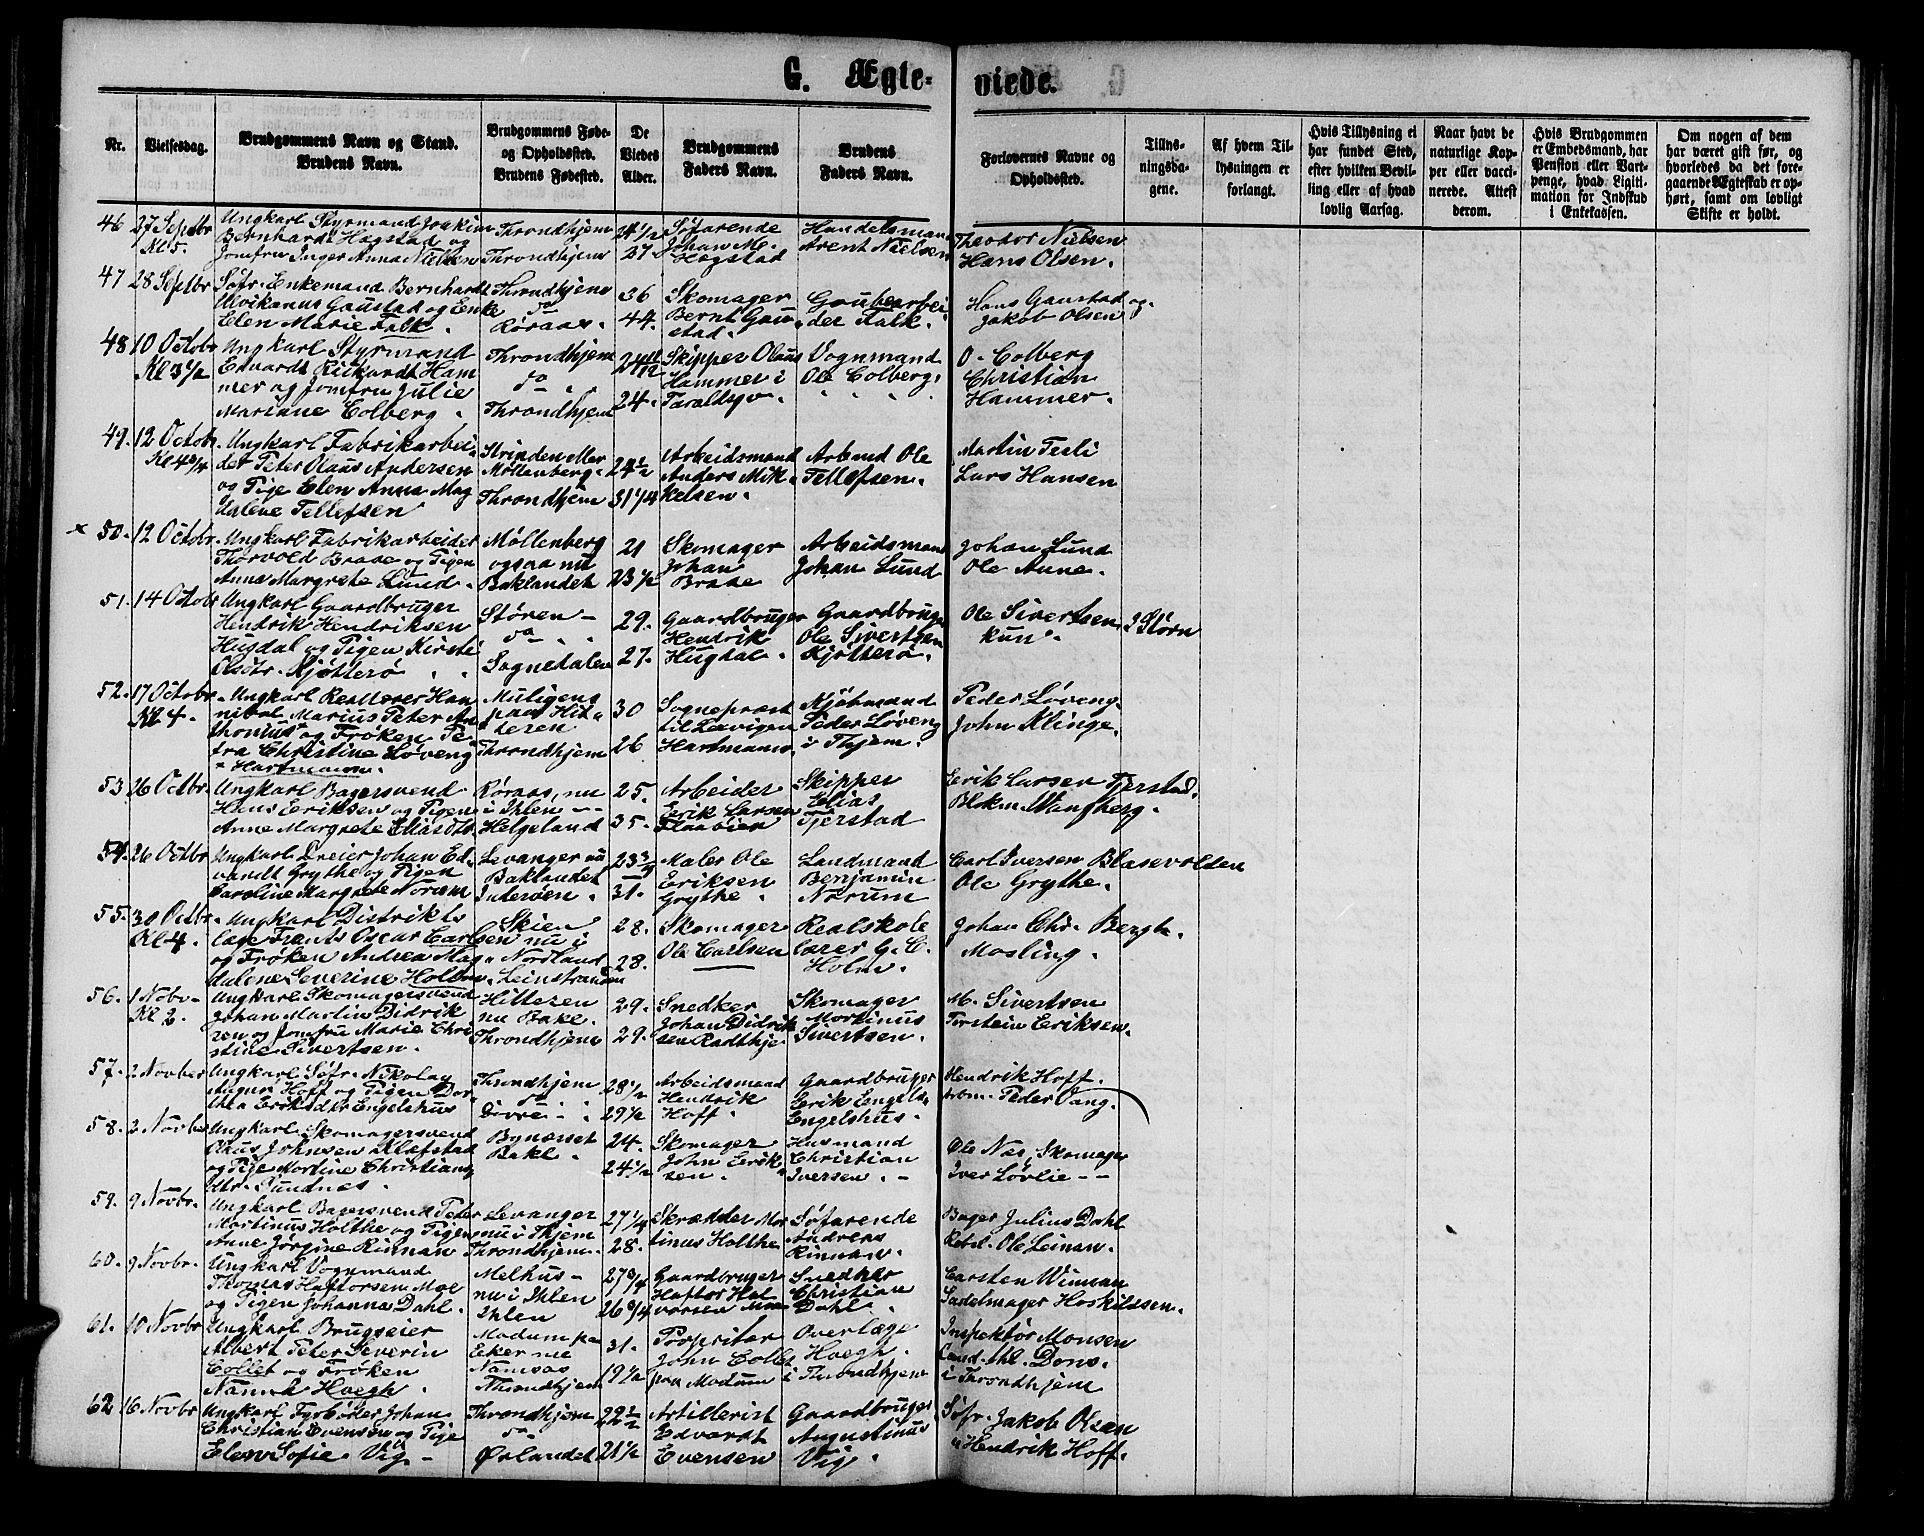 G. Ægte- viede.
Nr.
Vielsesdag.
Brudgommens Navn og Stand.
Brudens Navn.
Brudgommens Føde-
og Opholdssted.
Brudens Fødested.
De
Viedes
Alder.
Brudgommens
Faders Navn.
Brudens
Faders Navn.
Forlovernes Navne og
Opholdssted.
Tillys-
ningsda-
gene.
Af hvem Til-
lysningen er
forlangt.
Hvis Tillysning ei
har fundet Sted,
efter hvilken Bevil-
ling eller af hvad
lovlig Aarsag.
Naar havt de
naturlige Kop-
per eller vacci-
nerede. Attest
derom.
Hvis Brudgommen
er Embedsmand, har
Pension eller Vart-
penge, hvad Ligiti-
mation for Indskub
i Enkekassen.
Om nogen af dem
har været gift før, og
hvorledes da det fore-
gaaende Ægteskab er op-
hørt, samt om lovligt
Skifte er holdt.
46 27 Septbr Kl 5.
Ungkarl Styrmand Joakim
Bernhardt Hagstad og
Jomfru Inger Anna Nielsen
Throndhjem
Throndhjem
27
Søfarende
Johan M.
Hagstad
Handelsmand
Arent Nielsen
Theodor Nielsen
Hans Olsen.
47 28 Septbr
Søfr. Enkemand Bernhardt
Gaustad og Enke
Elen Marie Falk.
Throndhjem
do
Røraas.
36
44.
Skomager
Bernt Gau-
stad.
Grubearbei-
der Falk.
Hans Gaustad og
Jakob Olsen
48 10 Octobr Kl 3½
Ungkarl Styrmand
Edvardt Rickardt Ham
mer og Jomfru Julie
Mariane Colberg.
Throndhjem
do
Throndhjem
24.
Skipper Olaus
Hammer i
Vognmand
Ole Colberg.
O. Colberg
Christian
Hammer.
49. 12 Octobr. Kl 4¾
Ungkarl Fabrikarbei
der Peter Olaus Andersen
og Pige Elen Anna Mag
dalene Tellefsen
Strinden eller
Møllenberg.
Throndhjem
24½
31 1/4
Arbeidsmand
Anders Mik
kelsen.
Arbmd Ole
Tellefsen.
Martin Tesli
Lars Hansen
x 50. 12 Octobr.
Ungkarl Fabrikarbeider
Thorvold Braae og Pigen
Anna Margrete Lund.
Møllenberg
ogsaa nu
Baklandet
21
23½
Skomager
Johan
Braae
Arbeidsmand
Johan Lund
Johan Lund
Ole Aune.
51. 14 Octobr
Ungkarl Gaardbruger
Hendrik Hendriksen
Husdal og Pigen Kirsti
Olsdtr. Kjøtterø
Støren
do
Sognedalen
29.
27.
Gaardbruger
Hendrik
Hugdal.
Gaardbruger
Ole Sivertsen
Kjøtterø.
Ole Sivertsen
kun.
52. 17 Octobr Kl 4.
Ungkarl Reallærer Han
nibal Marius Peter An
thonius + og Frøken Pe
tra Christine Løveng
+ Hartmann.
Muligens
paa Hit
teren
Throndhjem
30
26
Sognepræst
til Leevigen
Hartmann.
Kjøbmand
Peder Løveng
i Thjem.
Peder Løveng.
John Klinge.
53. 26 Octbr.
Ungkarl Bagersvend
Hans Eriksen og Pigen
Anne Margrete Eliasdtr
Røraas, nu
i Ihlen
Helgeland
25.
35.
Arbeider
Erik Larsen
Skipper
Elias
Fjerstad
Erik Larsen Fjerstad.
Wangberg.
54. 26 Octbr
Ungkarl Dreier Johan Ed
vardt Grythe og Pigen
Caroline Margrete Norum
Levanger nu
Baklandet
Inderøen.
31.
Maler Ole
Eriksen
Grythe.
Landmand
Benjamin
Norum
Carl Iversen Blasevolden
Ole Grythe.
55. 30 Octbr. Kl 4.
Ungkarl Distrikts
læge Frants Oscar Carlsen
og Frøken Andrea Mag
dalene Severine Holm
Skien
nu i
Nordland
Leinstranden
28.
28.
Skomager
Ole Carlsen
Realskole
lærer G. C.
Holm.
Johan Chr. Bergh.
Mosling.
56. 1 Novbr Kl 2.
Ungkarl Skomagersvend
Johan Martin Didrik
sen og Jomfru Marie Chri
stine Sivertsen.
Hitteren
nu Bakl.
Throndhjem
29.
29.
Snedker
Johan Didrik
sen
Skomager
Mortinus
Sivertsen.
M. Sivertsen
Torstein Eriksen.
57. 2 Novber
Ungkarl Søfr. Nikolay
August Hoff og Pigen Dor
thea Eriksdtr Engelshus
Throndhjem
do
28½
29½
Arbeidsmand
Hendrik
Hoff.
Gaardbruger
Erik Engels
Engelshus.
Hendrik Hoff.
Arbm. Peder Vang.
58. 2 Novber
Ungkarl Skomagersvend
Olaus Johnsen Klefstad
og Pige Martine Christians
dtr. Sundnes.
Bynæsset
Bakl.
24.
24½
Skomager
John Erik
sen.
Husmand
Christian
Iversen.
Ole Næs, Skomager
Iver Løvlie
59. 9 Novbr.
Ungkarl Bagersvend Peter
Martinus Holthe og Pigen
Anne Jørgine Rinnan
Levanger
nu i Thjem
Throndhjem.
27 1/4
28.
Skrædder Mor
tinus Holthe
Søfarende
Andreas
Rinnan.
Bager Julius Dahl
Ole Leinan.
60. 9 Novbr.
Ungkarl Vognmand
Thomas Haftorsen Moe
og Pigen Johanna Dahl.
Melhus
nu i Ihlen
Ihlen
27¾
26¾
Gaardbruger
Haftor Hal
vorsen Moe
Snedker
Christian
Dahl.
Carsten Winnan
Sadelmager Hoskildsen.
61. 10 Novbr
Ungkarl Brugseier
Albert Peter Severin
Collet og Frøken
Nanna Høegh.
Modum pa
Eker nu
Namsos
Throndhjem
31.
19½
Propritær
John Collet
paa Modum
Overlæge
Høegh.
i Throndhjem
Inspektør Monsen
Cand. thl. Dons.
i Throndhjem
62 16 Novbr
Ungkarl Fyrbøder Johan
Christian Evensen og Pige
Elen Sofie Vig
Throndhjem
do
Ørlandet
22½
21½
Artillerist
Edvardt
Evensen
Gaardbruger
Augustinus
Vig.
Søfr. Jakob Olsen
" Hendrik Hoff.